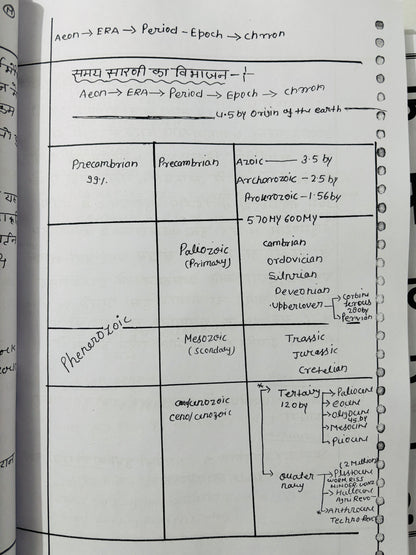 Aeon → ERA → Period - Epoch → chron
समय सारणी का विभाजन -
Aeon → ERA → Period → Epoch → chron
4.5 by Origin of the earth
Precambrian
99%
Precambrian
Azoic — 3.5 by
Archorozoic - 2.5 by
Proterozoic - 1.56 by
570 MY 600 MY
Phenerozoic
Paliozoic
(Primary)
Cambrian
Ordovician
Silurian
Deveonian
Uppercover
Carbine
ferous
280 by
Permian
Mesozoic
(Scondary)
Trassic
Jurassic
Cretelian
ceno/cenozoic
* Tertary
120 by
→ Paliocene
→ eocene
→ Oligocene
45 by
→ Mesocine
→ Pliocene
Quater
nary
(2 Million)
→ Plistocene
WORM, RISS
MINDER, GUNZ
→ Hallocene
Agri Revo
→ Anthrocene
Techno